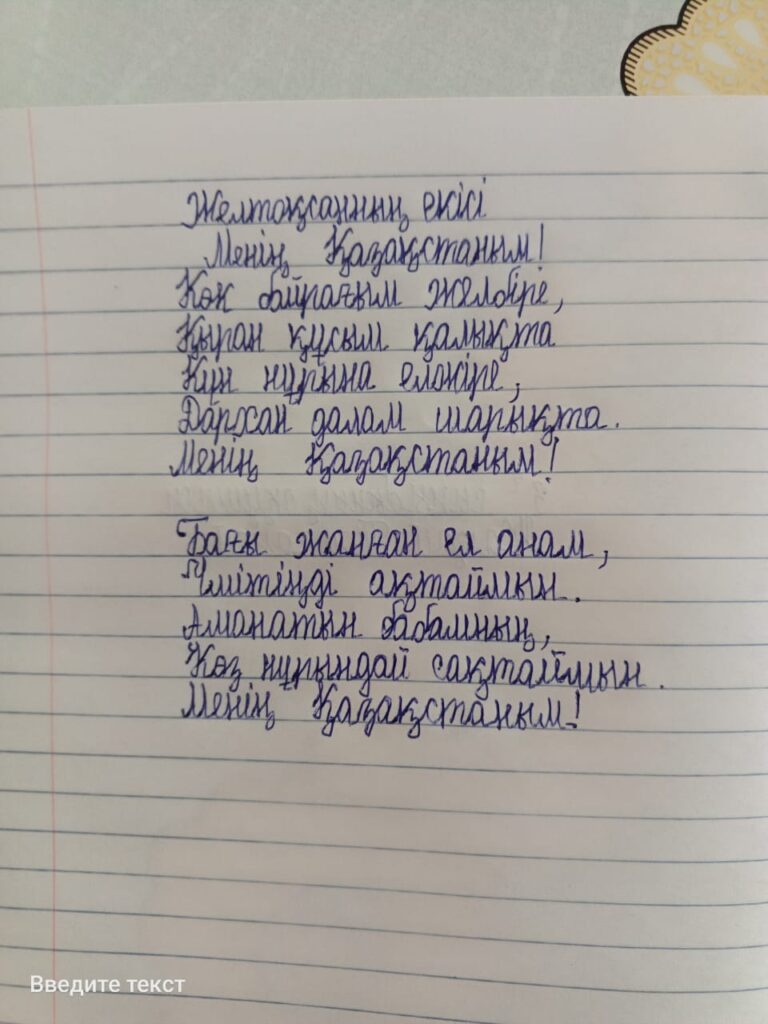 Желтоқсанның екісі
Менің Қазақстаным!
Көк байрағым желбіре,
Қыран құсым қалықта
Күн нұрына елжіре,
Дархан далам шарықта.
Менің Қазақстаным!
Бағы жанған ел анам,
Үмітіңді ақтаймын.
Аманатын бабамның,
Көз нұрындай сақтаймын.
Менің Қазақстаным!
Введите текст